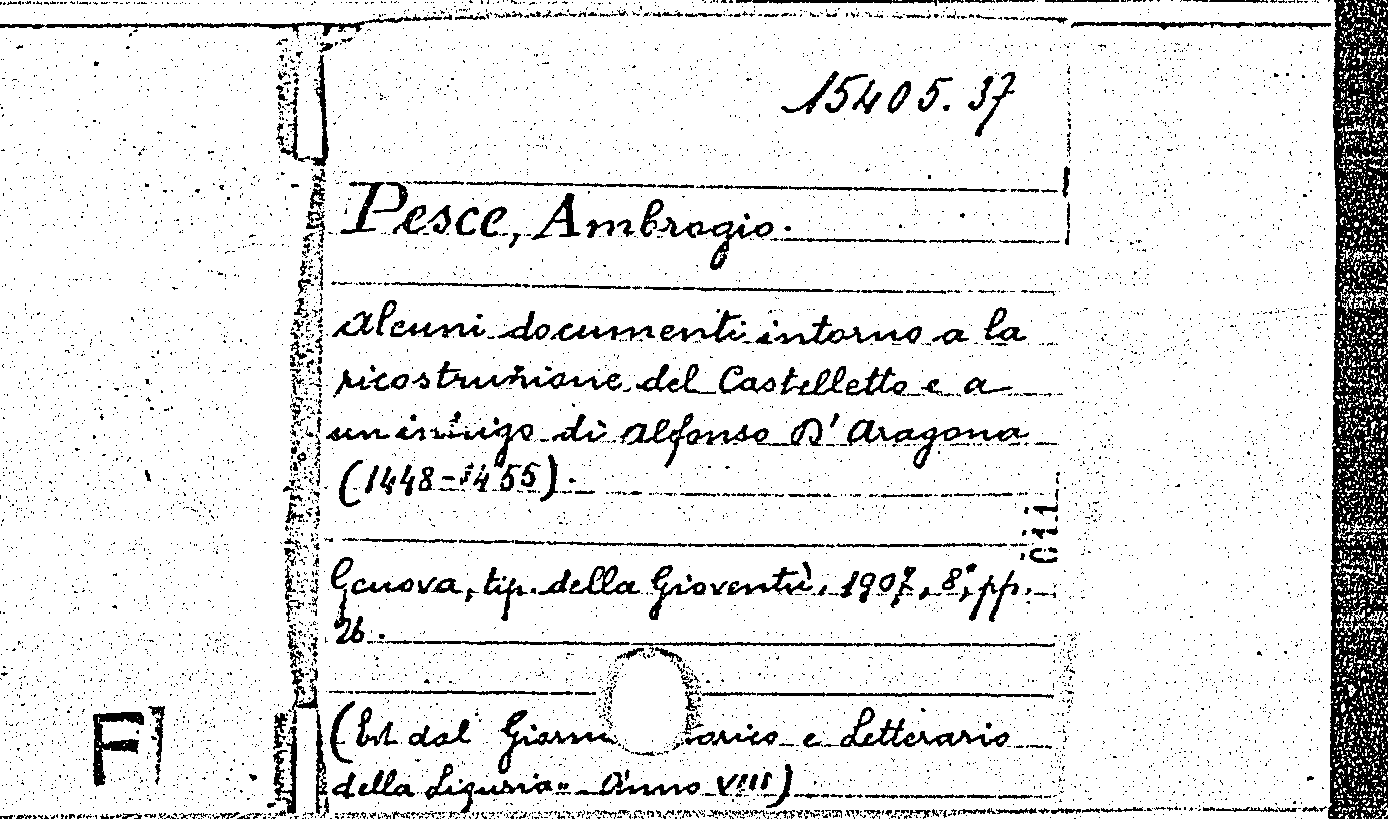 15405.37
Pesce, Ambrogio.
Alcuni documenti intorno a la
ricostruzione del Castelletto e a
un di Alfonso D' Aragona
(1448-1455).
Genova, tip. della Gioventù, 1907, 8°, pp.
26.
(Est. dal e Letterario
della Liguria" Anno VIII)
F